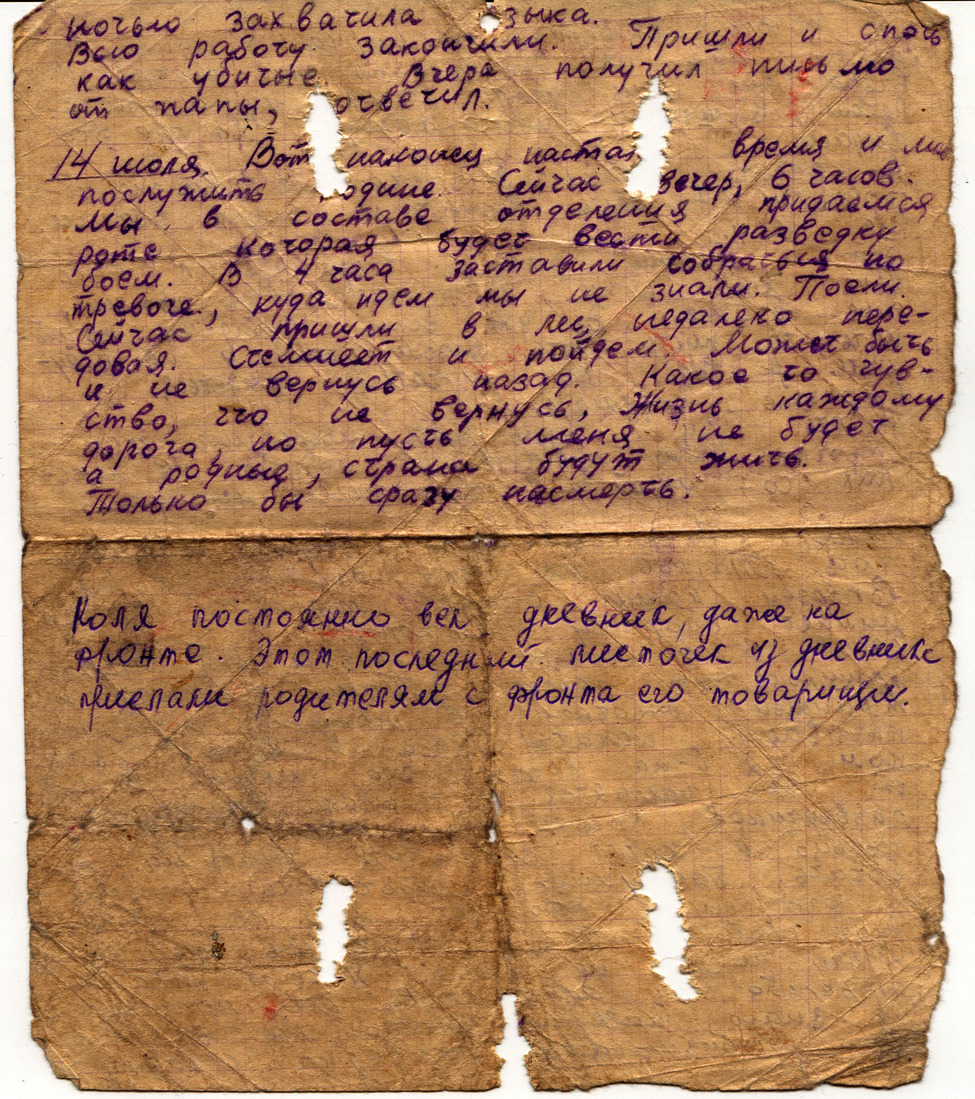 ночью захватила зыка.
Всю работу закончили. Пришли и спать
как убитые. Вчера получил письмо
от папы, отвечил.
14 июля. Вот наконец настал время и мне
послужить одине. Сейчас вечер, 6 часов.
Мы в составе отделения придаемся
роте которая будет вести разведку
боем. В 4 часа заставили собраться по
тревоге, куда идем мы не знали. Поели.
Сейчас пришли в лес, недалеко пере-
довая. Стемнеет и пойдем. Может быть
и не вернусь назад. Какое то чув-
ство, что не вернусь, Жизнь каждому
дорога, но пусть меня не будет
а родные, страна будут жить.
Только бы сразу насмерть.
Коля постоянно вел дневник, даже на
фронте. Этот последний листочек из дневника
прислали родителям с фронта его товарищи.